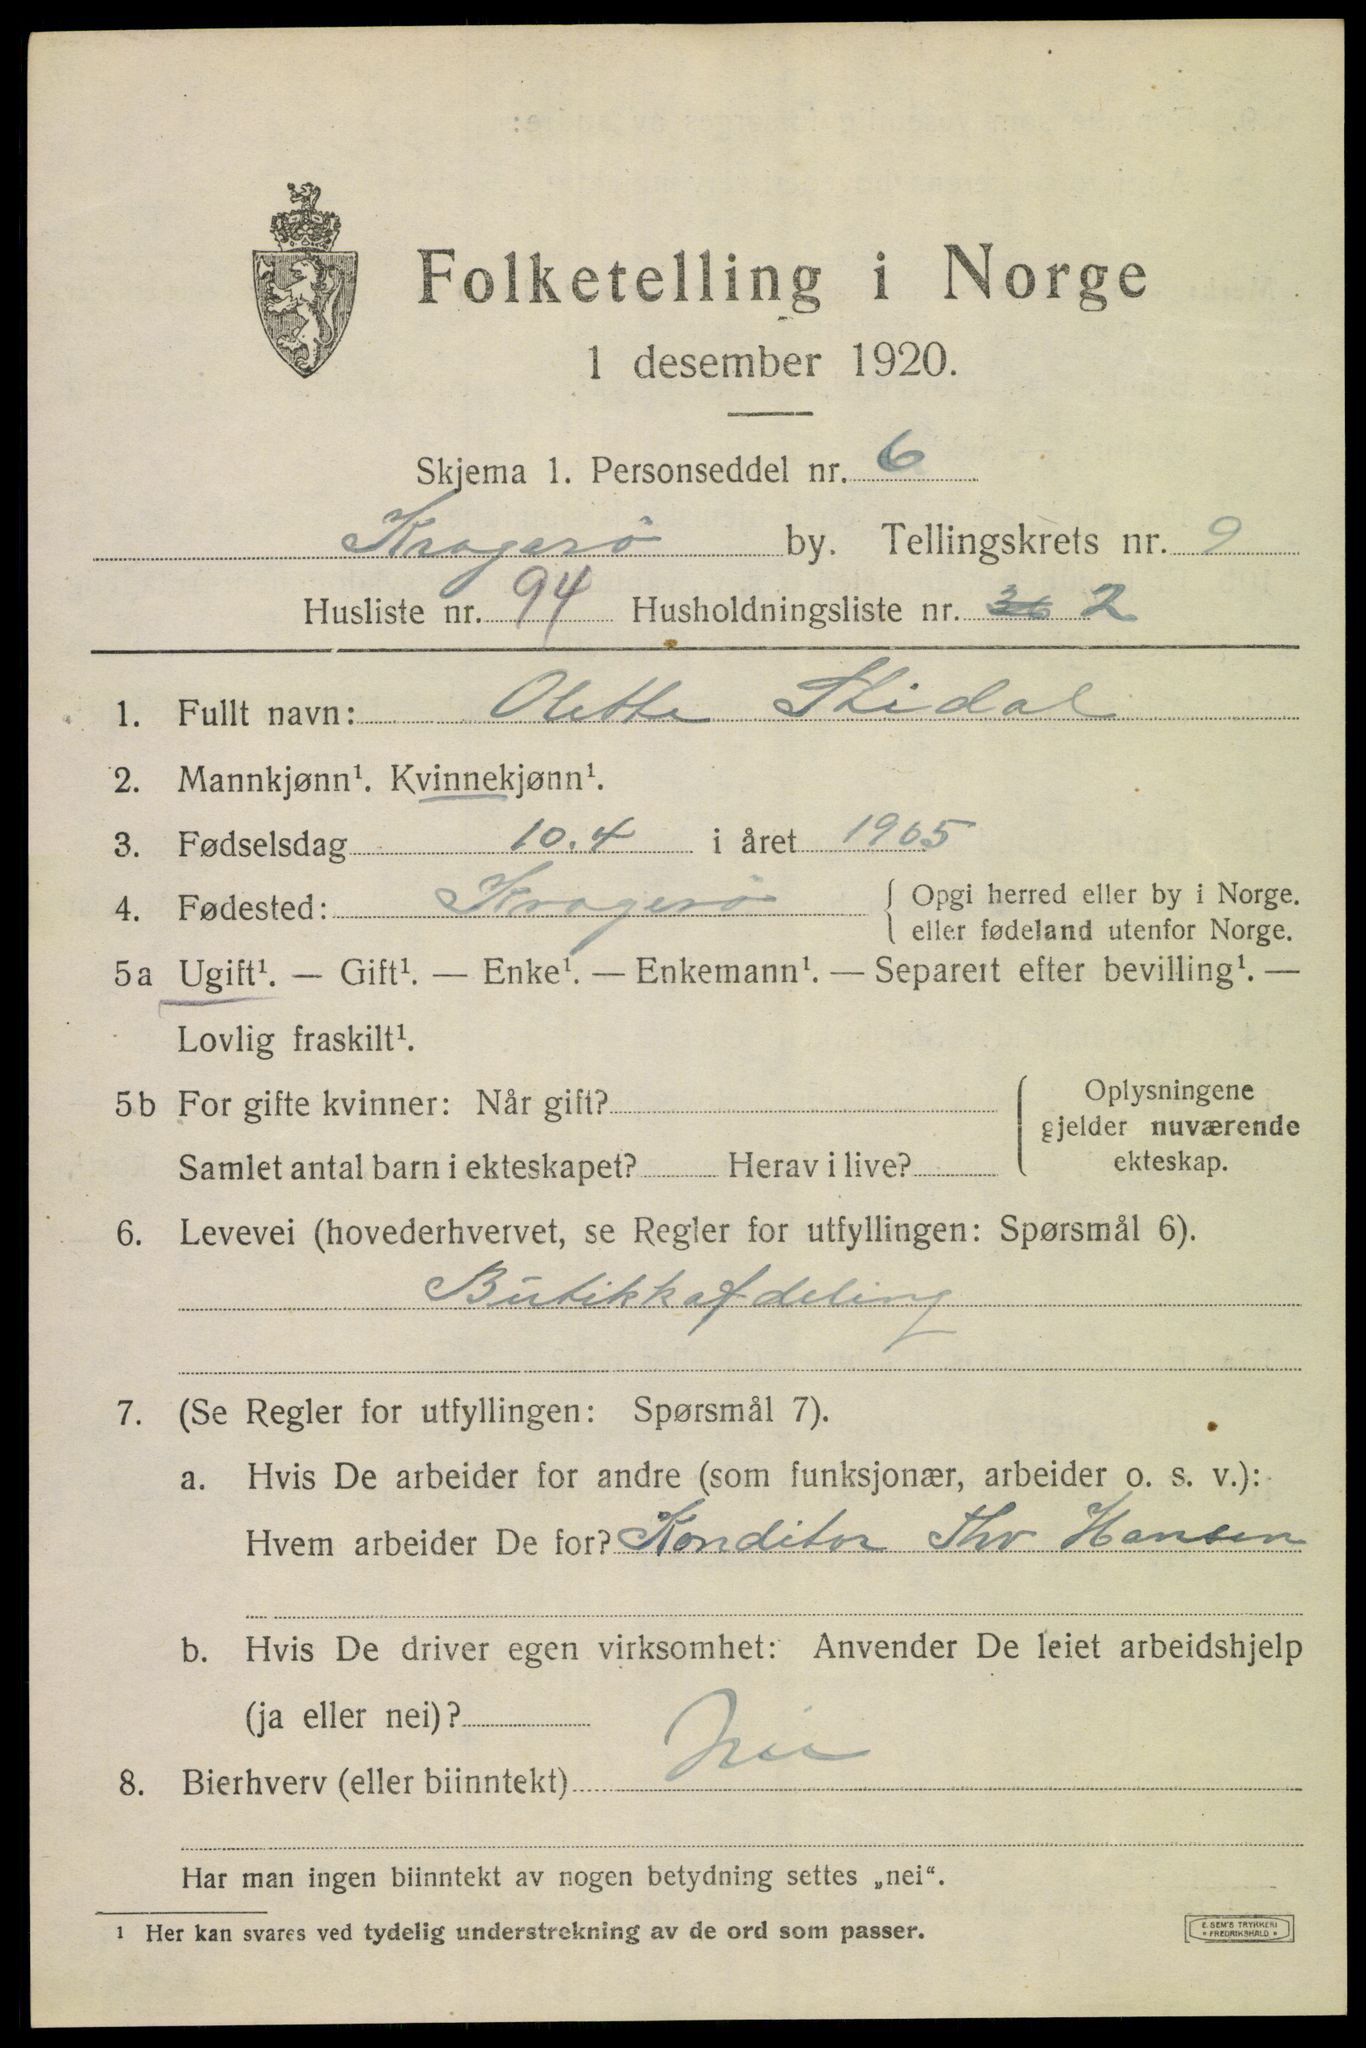 Folketelling i Norge
1 desember 1920.
Skjema 1. Personseddel nr. 6
Kragerö by. Tellingskrets nr. 9
Husliste nr. 94 Husholdningsliste nr. 36 2
1. Fullt navn: Olette Skidal
2. Mannkjønn¹. Kvinnekjønn¹.
3. Fødselsdag 10.4 i året 1905
4. Fødested: Kragerö { Opgi herred eller by i Norge.
eller fødeland utenfor Norge.
5a Ugift¹. — Gift¹. — Enke¹. — Enkemann¹. — Separert efter bevilling¹. —
Lovlig fraskilt¹.
5b For gifte kvinner: Når gift? { Oplysningene
gjelder nuværende
Samlet antal barn i ekteskapet? Herav i live? ekteskap.
6. Levevei (hovederhvervet, se Regler for utfyllingen: Spørsmål 6).
Butikkafdeling
7. (Se Regler for utfyllingen: Spørsmål 7).
a. Hvis De arbeider for andre (som funksjonær, arbeider o. s. v.):
Hvem arbeider De for? Konditor Thv Hansen
b. Hvis De driver egen virksomhet: Anvender De leiet arbeidshjelp
(ja eller nei)?
8. Bierhverv (eller biinntekt) Nei
Har man ingen biinntekt av nogen betydning settes „nei“.
¹ Her kan svares ved tydelig understrekning av de ord som passer.
E. SEM'S TRYKKERI
FREDRIKSHALD